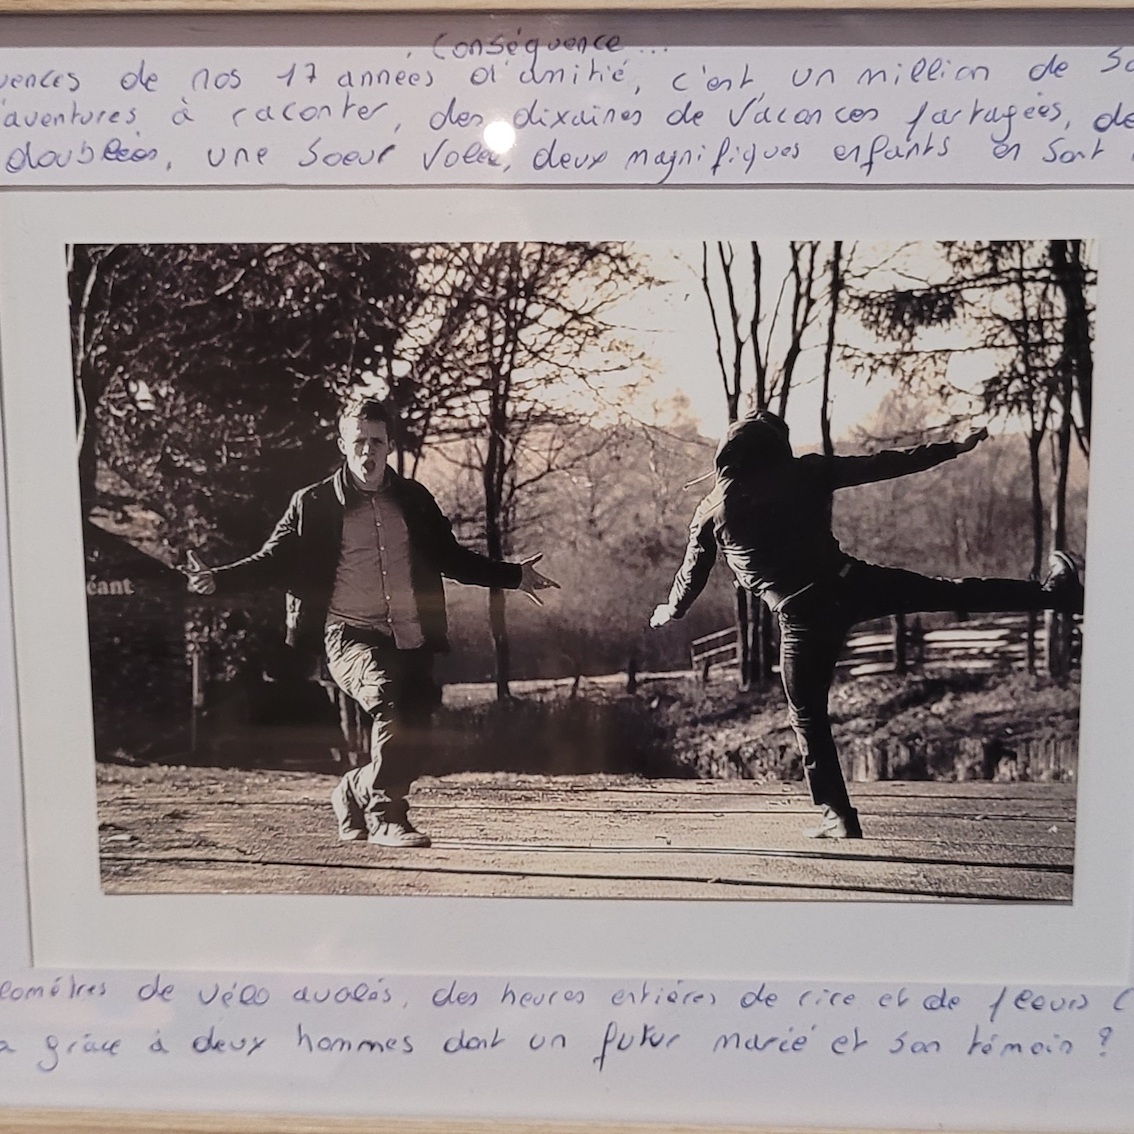 Conséquence...
uences de nos 17 années d'amitié, c'est, un million de So
'aventures à raconter, des dixaines de vacances partagées, de
doublées, une soeur volée, deux magnifiques enfants en sont
éant
lomètres de vélo avalés, des heures entières de rire et de pleurs (
a grâce à deux hommes dont un futur marié et son témoin ?